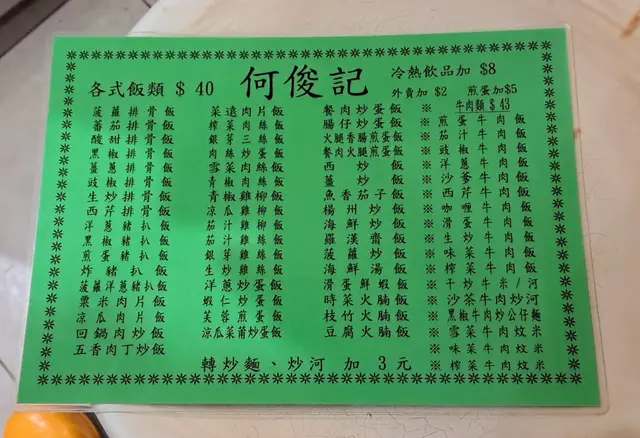 何俊記
各式飯類 $ 40
冷熱飲品加 $8
外賣加 $2 煎蛋加$5
菠蘿排骨飯
蕃茄排骨飯
酸甜排骨飯
黑椒排骨飯
薑蔥排骨飯
豉椒排骨飯
生炒排骨飯
西芹排骨飯
洋蔥豬扒飯
黑椒豬扒飯
煎蛋豬扒飯
炸豬扒飯
菠蘿洋蔥豬扒飯
粟米肉片飯
涼瓜肉片飯
回鍋肉炒飯
五香肉丁炒飯
菜遠肉片飯
榨菜肉絲飯
銀芽三絲飯
肉絲炒蛋飯
雪菜肉絲飯
青椒肉絲飯
青椒雞柳飯
涼瓜雞柳飯
茄汁雞柳飯
茄汁雞絲飯
銀芽雞絲飯
生炒雞絲飯
洋蔥炒蛋飯
蝦仁炒蛋飯
芙蓉煎蛋飯
涼瓜菜莆炒蛋飯
餐肉炒蛋飯
腸仔炒蛋飯
火腿香腸煎蛋飯
餐肉火腿煎蛋飯
西炒飯
薑炒飯
魚香茄子飯
楊州炒飯
海鮮炒飯
羅漢齋飯
菠蘿炒飯
海鮮湯飯
滑蛋鮮蝦飯
時菜火腩飯
枝竹火腩飯
豆腐火腩飯
牛肉類 $ 43
※ 煎蛋牛肉飯
※ 茄汁牛肉飯
※ 豉椒牛肉飯
※ 洋蔥牛肉飯
※ 沙爹牛肉飯
※ 西芹牛肉飯
※ 咖喱牛肉飯
※ 滑蛋牛肉飯
※ 生炒牛肉飯
※ 味菜牛肉飯
※ 榨菜牛肉飯
※ 干炒牛米/河
※ 沙茶牛肉炒河
※ 黑椒牛肉炒公仔麵
※ 雪菜牛肉炆米
※ 味菜牛肉炆米
※ 榨菜牛肉炆米
轉炒麵、炒河 加 3 元